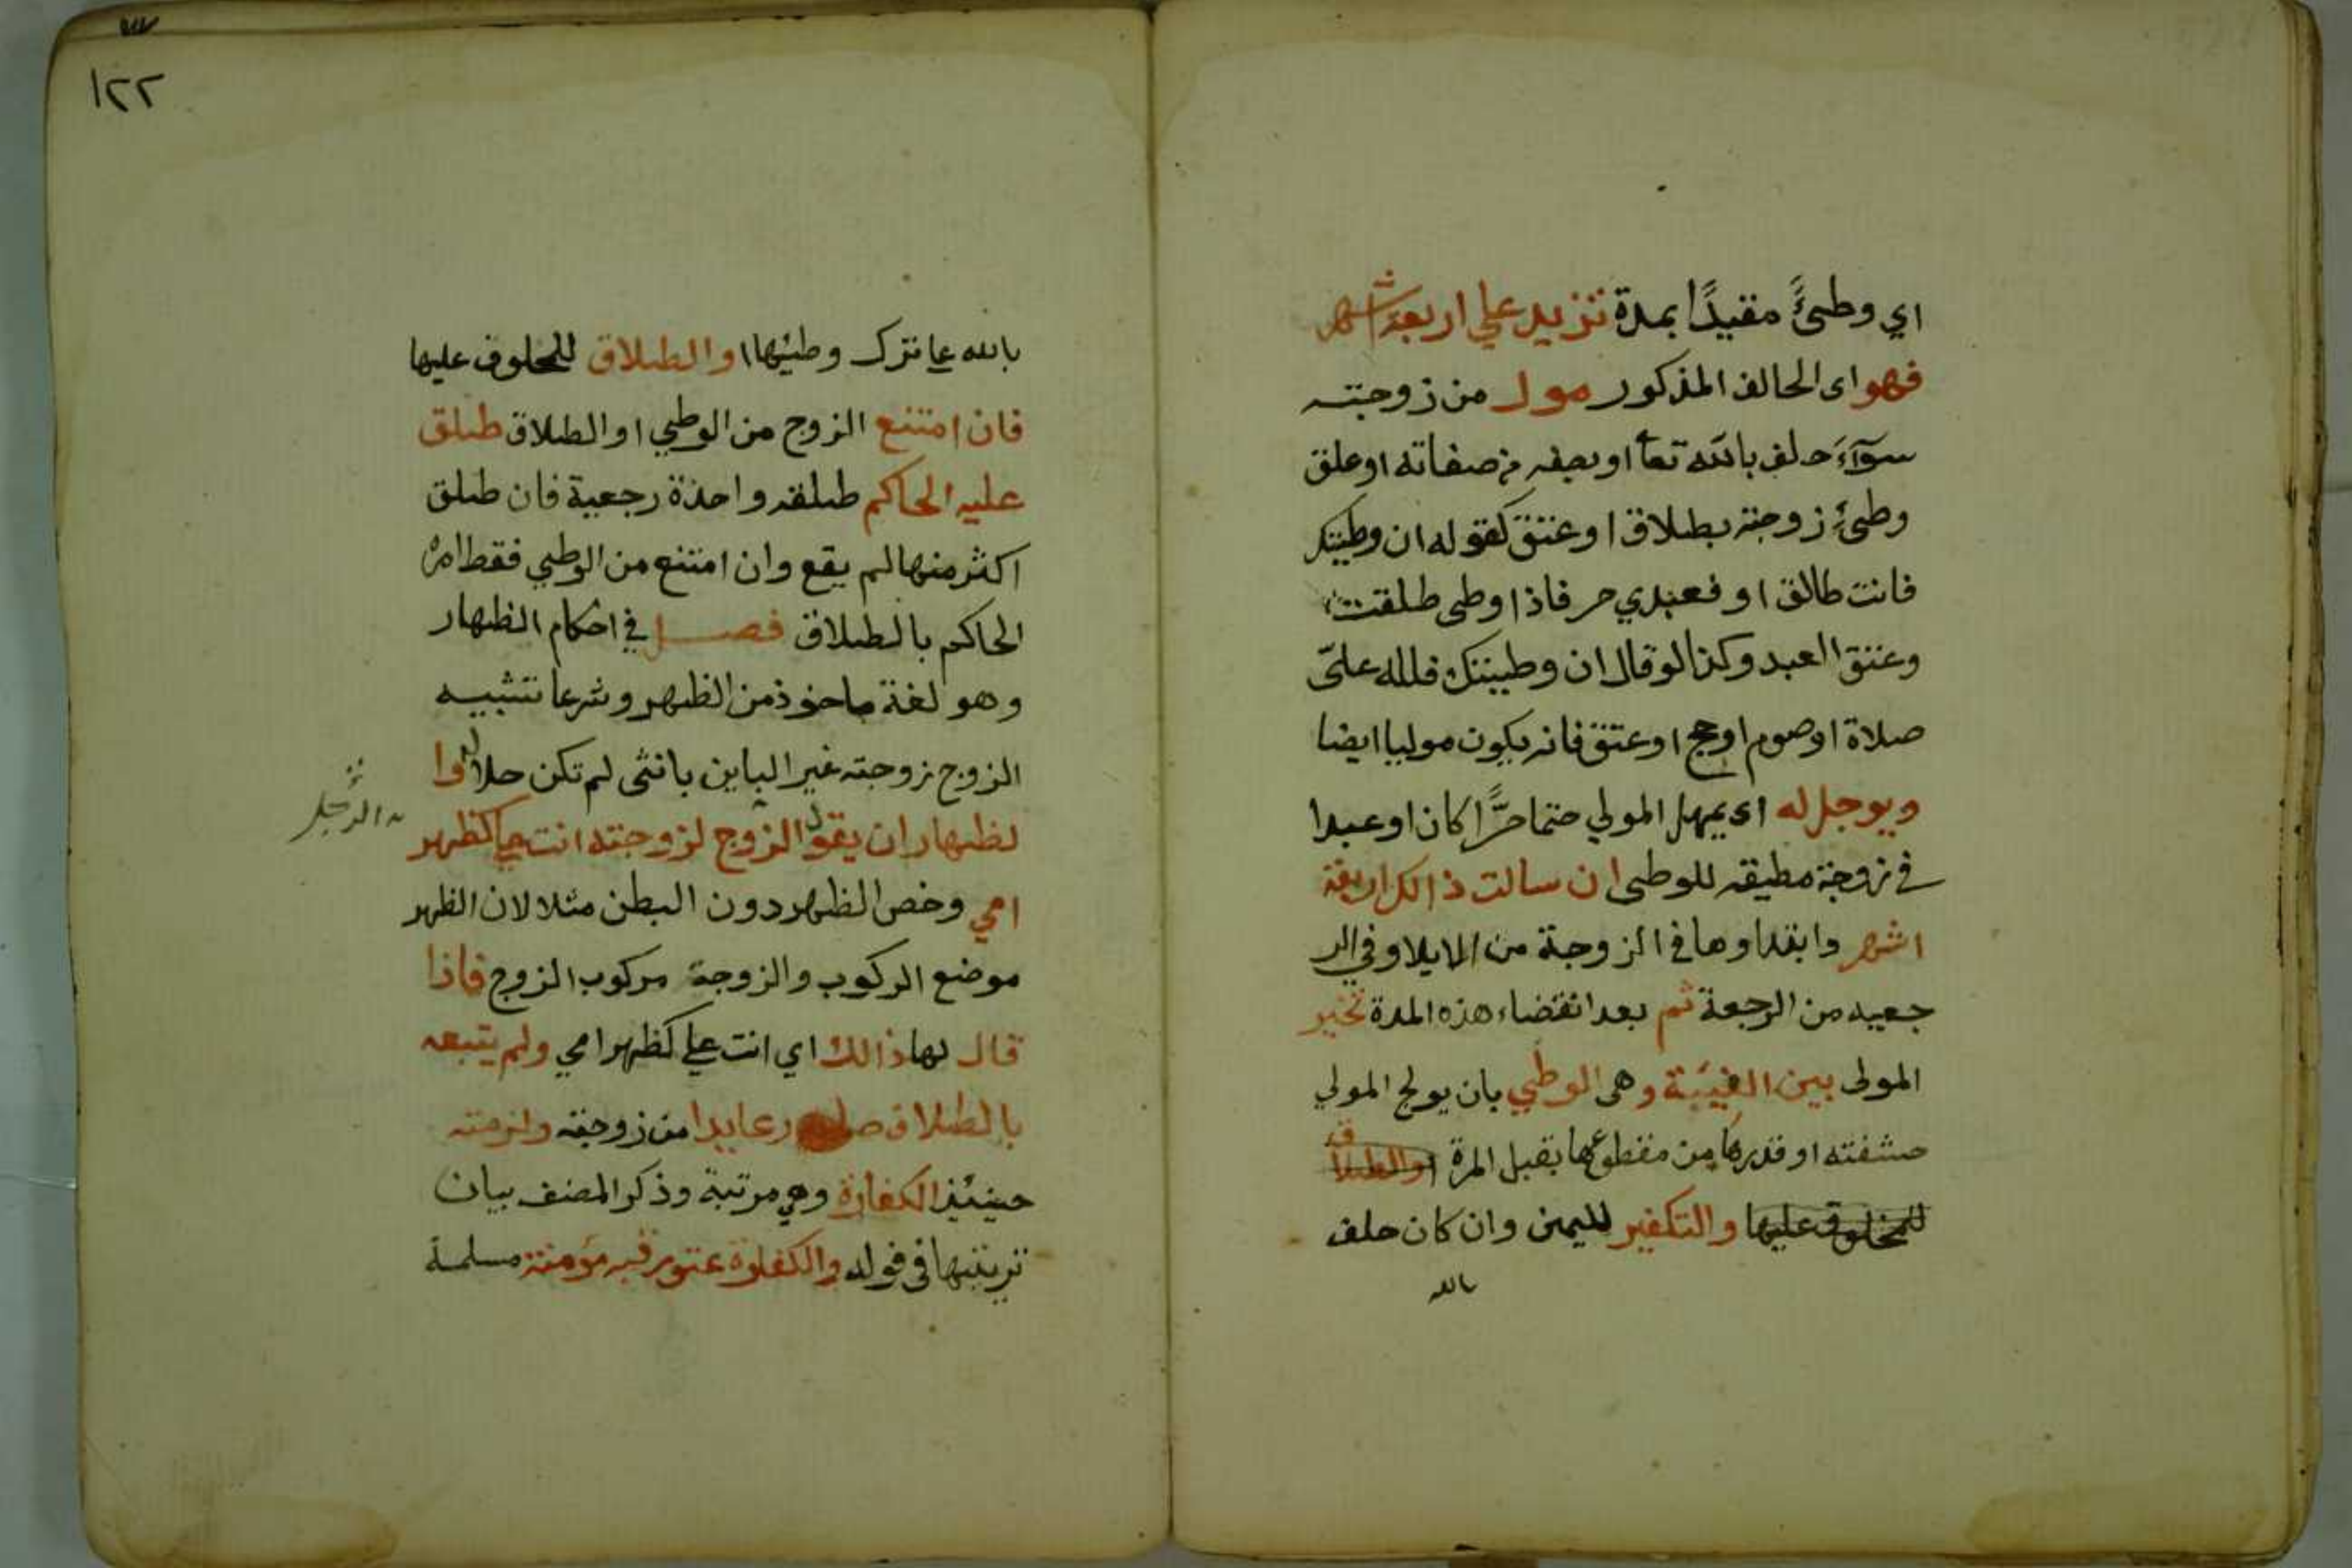 اي وطئًا مقيدًا بمدة تزيد علي اربعة اشهر
فهو اى الحالف المذكور مول من زوجته
سوآءَ حلف بالله تعا او بصفه من صفاته او علق
وطئَ زوجته بطلاق او عتق كقوله ان وطيتك
فانت طالق او فعبدي حر فاذا وطى طلقت
وعتق العبد وكذا لو قال ان وطيتك فلله علىّ
صلاة او صوم او حج او عتق فانه يكون موليا ايضا
ويوجل له اى يمهل المولي حتما حرًّا كان او عبدا
في زوجة مطيقه للوطى ان سالت ذالك اربعة
اشهر وابتداوها في الزوجة من الايلا وفي الر
جعيه من الرجعة ثم بعد انقضاء هذه المدة تخير
المولى بين الفيئة وهى الوطي بان يولج المولي
حشفته او قدرها من مقطوعها بقبل المرة او الطلاق
للمحلوف عليها والتكفير لليمن وان كان حلف
بالله
١٢٢
بالله عا ترك وطيها او الطلاق للمحلوف عليها
فان امتنع الزوج من الوطي او الطلاق طلق
عليه الحاكم طلقه واحذة رجعية فان طلق
اكثر منها لم يقع وان امتنع من الوطي فقط امره
الحاكم بالطلاق فصل في احكام الظهار
وهو لغة ماخوذ من الظهر وشرعا تشبيه
الزوج زوجته غير الباين بانثى لم تكن حلا له وا
لظهار ان يقول الزوج لزوجته انت علي كظهر
الرجل
امي وخص الظهر دون البطن مثلا لان الظهر
موضع الركوب والزوجة مركوب الزوج فاذا
قال لها ذالك اي انت علي كظهر امي ولم يتبعه
بالطلاق صار عايدا من زوجته ولزمته
حينئذ الكفارة وهي مرتبة وذكر المصنف بيان
ترتيبها في قوله والكفارة عتق رقبه مؤمنة مسلمة